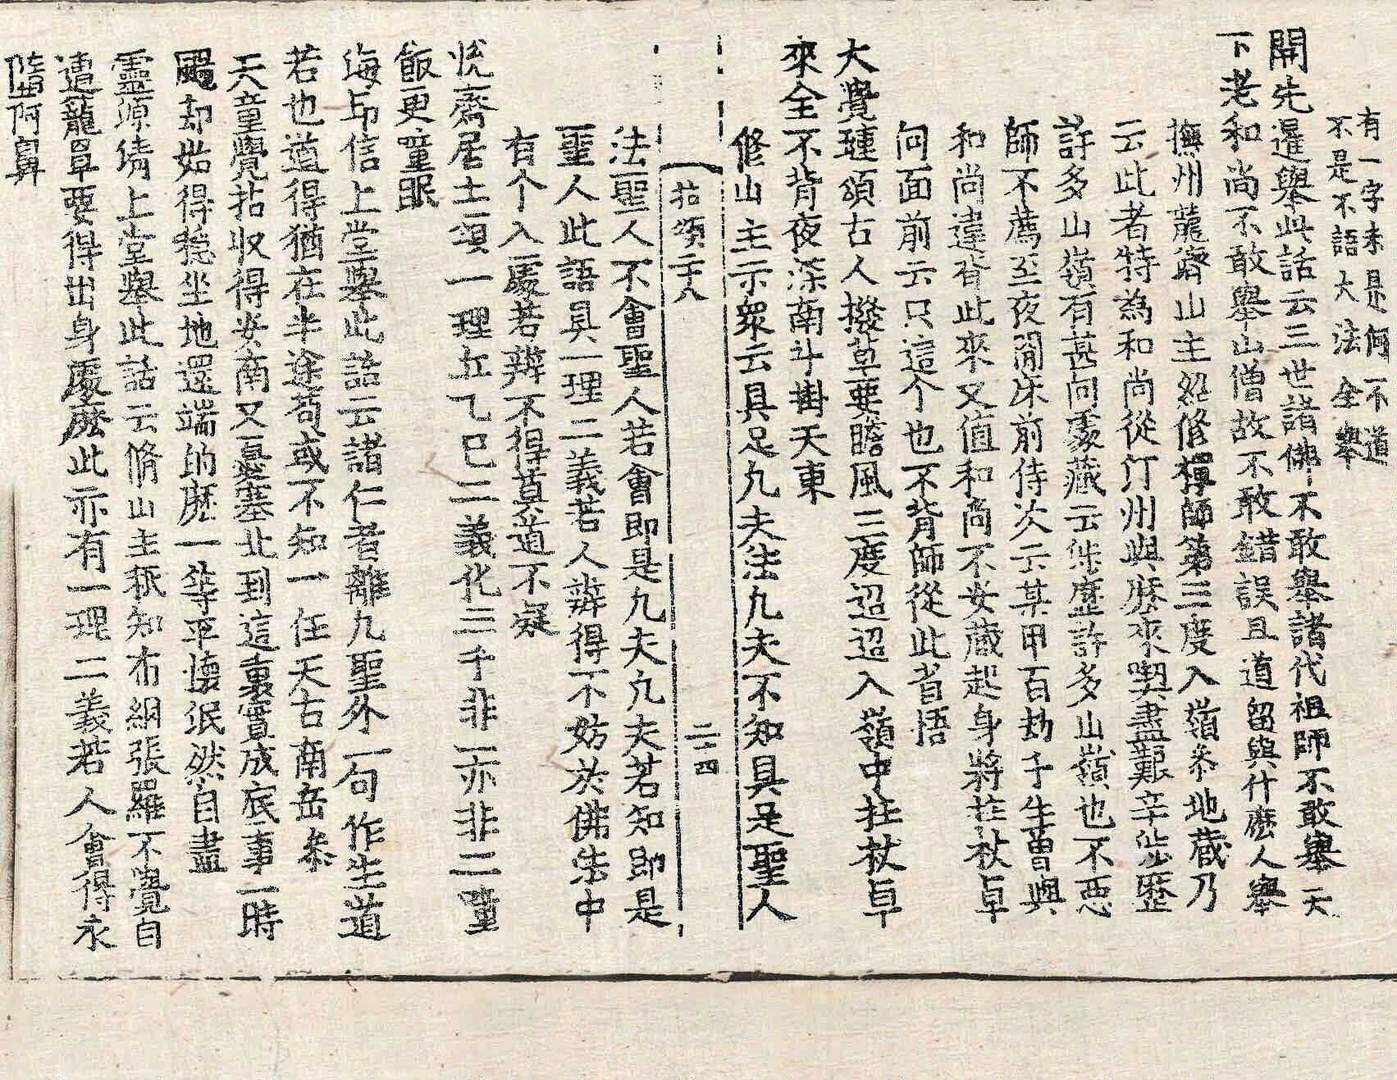 有一字未是何不道
不是不語大法全舉
開先暹舉此話云三世諸佛不敢舉諸代祖師不敢舉天
下老和尚不敢舉山僧故不敢錯誤且道留與什麽人舉
撫州龍濟山主紹修禪師第三度入嶺叅地藏乃
云此者特為和尚從汀州與麽來喫盡艱辛涉歷
許多山嶺有甚向處藏云涉歷許多山嶺也不惡
師不薦至夜間床前侍次云某甲百劫千生曾與
和尚違背此來又值和尚不安藏起身將拄杖卓
向面前云只這个也不背師從此省悟
大覺璉頌古人撥草要瞻風三度迢迢入嶺中拄杖卓
來全不背夜深南斗掛天東
修山主示衆云具足凡夫法凡夫不知具足聖人
拈頌二十八 二十四
法聖人不會聖人若會即是凡夫凡夫若知即是
聖人此語具一理二義若人辨得不妨於佛法中
有个入處若辨不得莫道不疑
悅齋居士頌一理丘乙巳二義化三千非一亦非二瞳
飯更瞳眠
海印信上堂舉此話云諸仁者離凡聖外一句作生道
若也道得猶在半途苟或不知一任天台南岳叅
天童覺拈收得安南又憂塞北到這裏實成底事一時
颺却始得穩坐地還端的麽一等平懷泯然自盡
靈源清上堂舉此話云脩山主秖知布網張羅不覺自
遭籠罩要得出身處麽此亦有一理二義若人會得永
墮阿鼻